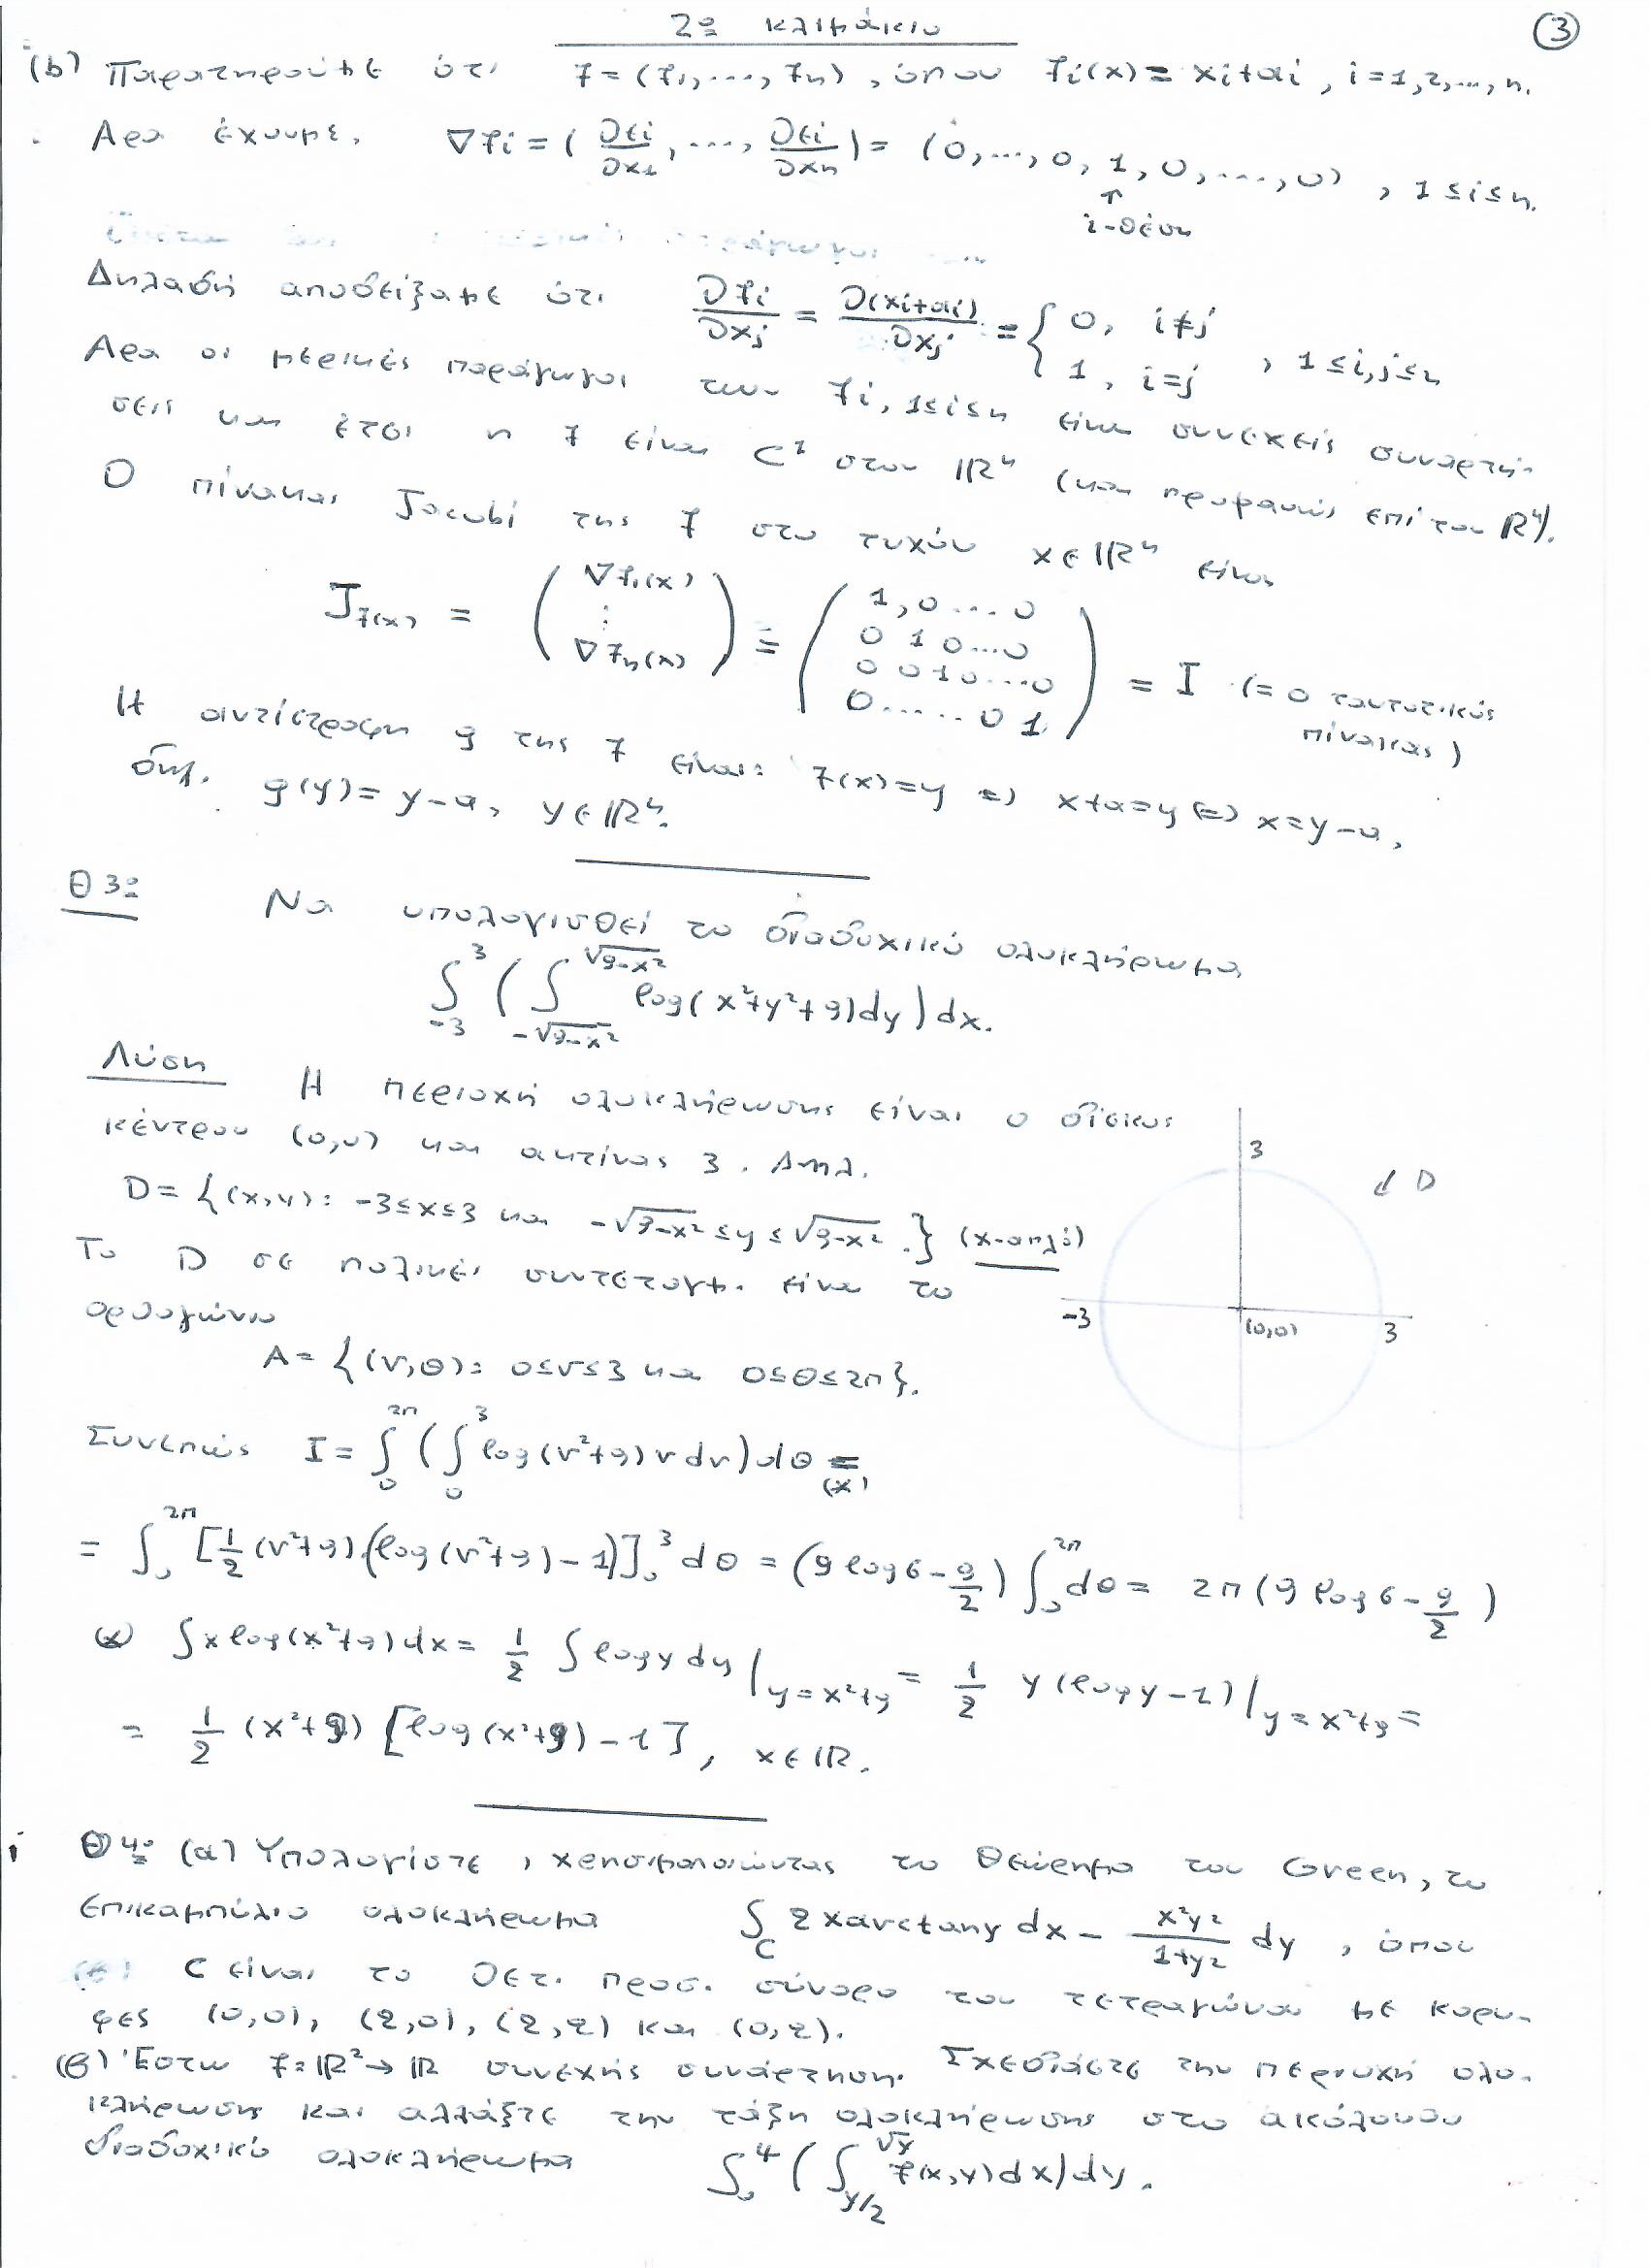 2ο κλιμάκιο
③
(b) Παρατηρούμε ότι f = (f₁, ..., fₙ), όπου fᵢ(x) = xᵢ+αᵢ, i=1,2,...,n.
Αρα έχουμε, ∇fᵢ = (∂fᵢ/∂x₁, ..., ∂fᵢ/∂xₙ) = (0, ..., 0, 1, 0, ..., 0), 1≤i≤n.
↑
i-θέση
Δηλαδή αποδείξαμε ότι ∂fᵢ/∂xⱼ = ∂(xᵢ+αᵢ)/∂xⱼ = { 0, i≠j
1, i=j , 1≤i,j≤n
Αρα οι μερικές παράγωγοι των fᵢ, 1≤i≤n είναι συνεχείς συναρτή-
σεις και έτσι η f είναι C¹ στον ℝⁿ (και προφανώς επί του ℝⁿ).
Ο πίνακας Jacobi της f στο τυχόν x∈ℝⁿ είναι
J_f(x) = ( ∇f₁(x) ⋮ ∇fₙ(x) ) = ( 1,0...0
0 1 0...0
0 0 1 0...0
0......0 1 ) = I (= ο ταυτοτικός
πίνακας)
Η αντίστροφη g της f είναι: f(x)=y ⇔ x+α=y ⇔ x=y-α,
δηλ. g(y)=y-α, y∈ℝⁿ.
Θ3ο Να υπολογισθεί το διαδοχικό ολοκλήρωμα
∫₋₃³ ( ∫_{-√(9-x²)}^{√(9-x²)} log(x²+y²+9)dy ) dx.
Λύση Η περιοχή ολοκλήρωσης είναι ο δίσκος
κέντρου (0,0) και ακτίνας 3. Δηλ.
D = {(x,y): -3≤x≤3 και -√(9-x²) ≤ y ≤ √(9-x²).} (x-απλό)
Το D σε πολικές συντεταγμ. είναι το
ορθογώνιο
A = {(r,θ): 0≤r≤3 και 0≤θ≤2π}.
3
↙ D
-3
(0,0)
3
Συνεπώς I = ∫₀^{2π} ( ∫₀³ log(r²+9) r dr ) dθ =
(*)
= ∫₀^{2π} [½(r²+9)(log(r²+9)-1)]₀³ dθ = (9 log6 - 9/2) ∫₀^{2π} dθ = 2π(9 log6 - 9/2)
(*) ∫x log(x²+9)dx = ½ ∫logy dy |_{y=x²+9} = ½ y(logy-1)|_{y=x²+9} =
= ½ (x²+9) [log(x²+9)-1], x∈ℝ.
Θ4ο (α) Υπολογίστε, χρησιμοποιώντας το Θεώρημα του Green, το
επικαμπύλιο ολοκλήρωμα ∫_C 2x arctany dx - x²y²/(1+y²) dy, όπου
C είναι το θετ. προσ. σύνορο του τετραγώνου με κορυ-
φές (0,0), (2,0), (2,2) και (0,2).
(β) Έστω f:ℝ²→ℝ συνεχής συνάρτηση. Σχεδιάστε την περιοχή ολο-
κλήρωσης και αλλάξτε την τάξη ολοκλήρωσης στο ακόλουθο
διαδοχικό ολοκλήρωμα ∫₀⁴ ( ∫_{y/2}^{√y} f(x,y)dx ) dy.